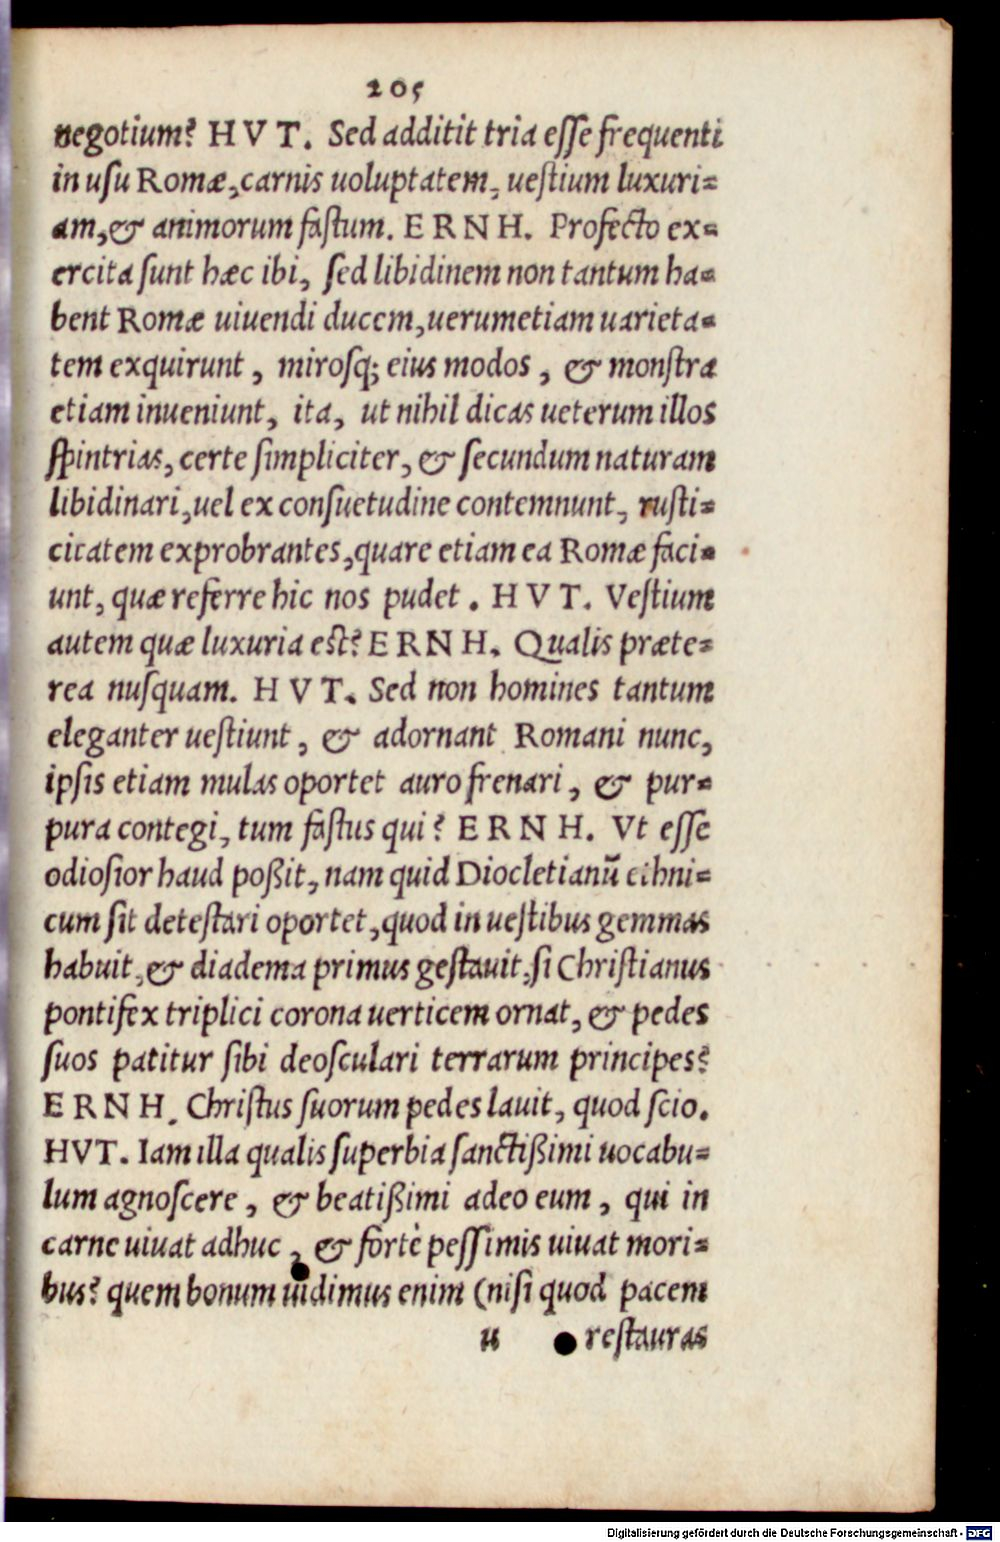 205
negotium? HVT. Sed additit tria esse frequenti
in usu Romæ, carnis uoluptatem, uestium luxuri=
am, & animorum fastum. ERNH. Profecto ex=
ercita sunt hæc ibi, sed libidinem non tantum ha=
bent Romæ uiuendi ducem, uerumetiam uarieta=
tem exquirunt, mirosq; eius modos, & monstra
etiam inueniunt, ita, ut nihil dicas ueterum illos
spintrias, certe simpliciter, & secundum naturam
libidinari, uel ex consuetudine contemnunt, rusti=
citatem exprobrantes, quare etiam ea Romæ faci=
unt, quæ referre hic nos pudet. HVT. Vestium
autem quæ luxuria est? ERNH. Qualis præte=
rea nusquam. HVT. Sed non homines tantum
eleganter uestiunt, & adornant Romani nunc,
ipsis etiam mulas oportet auro frenari, & pur=
pura contegi, tum fastus qui? ERNH. Vt esse
odiosior haud poßit, nam quid Diocletianū ethni=
cum sit detestari oportet, quod in uestibus gemmas
habuit, & diadema primus gestauit, si Christianus
pontifex triplici corona uerticem ornat, & pedes
suos patitur sibi deosculari terrarum principes?
ERNH. Christus suorum pedes lauit, quod scio.
HVT. Iam illa qualis superbia sanctißimi uocabu=
lum agnoscere, & beatißimi adeo eum, qui in
carne uiuat adhuc, & fortè pessimis uiuat mori=
bus? quem bonum uidimus enim (nisi quod pacem
u restauras
Digitalisierung gefördert durch die Deutsche Forschungsgemeinschaft - DFG